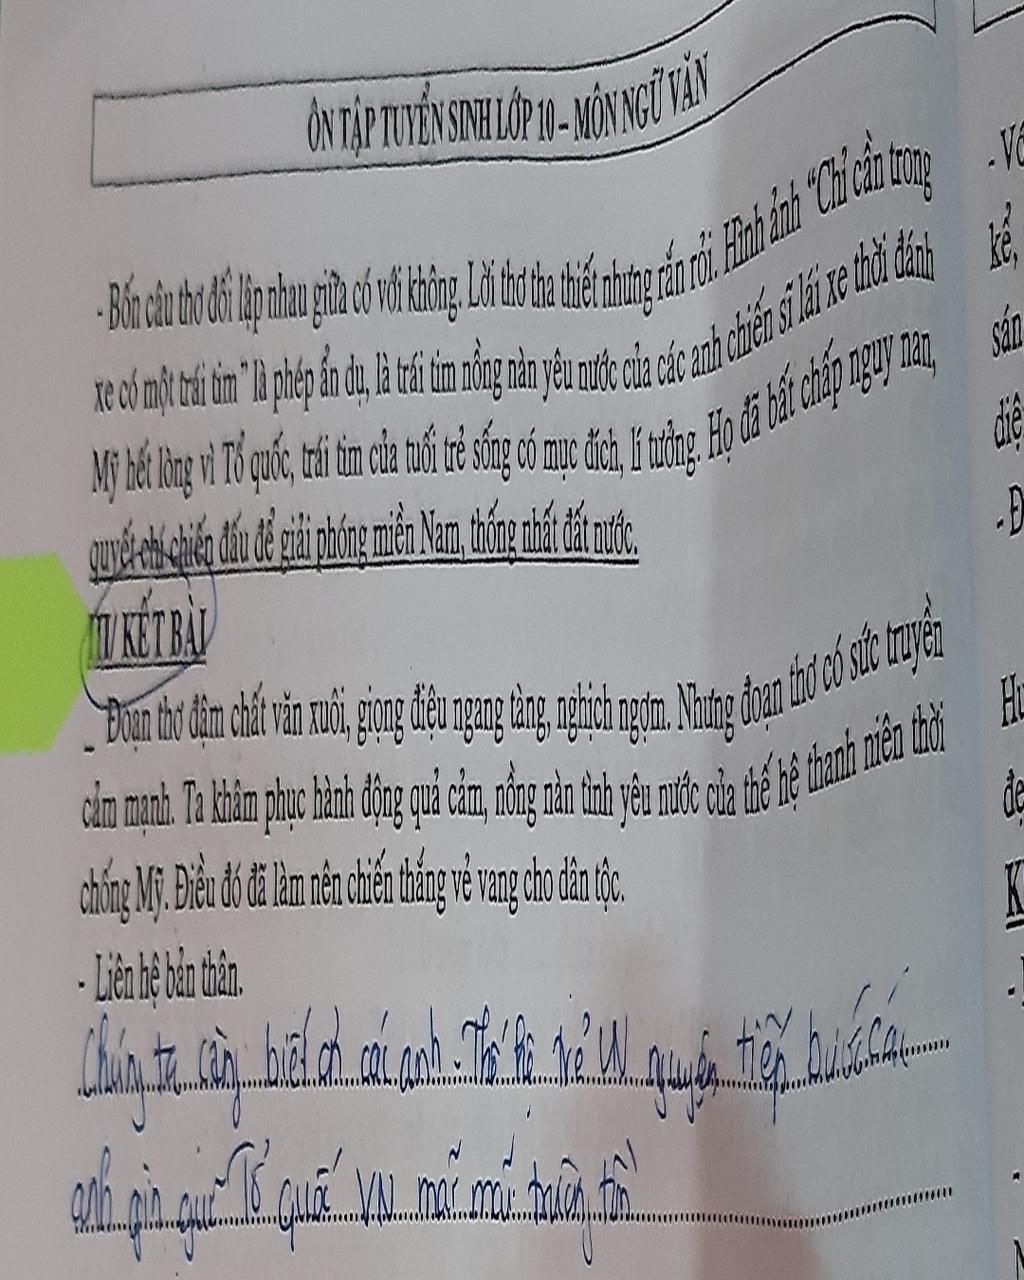 ÔN TẬP TUYỂN SINH LỚP 10 – MÔN NGỮ VĂN
- Bốn câu thơ đối lập nhau giữa có với không. Lời thơ tha thiết nhưng rắn rỏi. Hình ảnh “Chỉ cần trong
xe có một trái tim” là phép ẩn dụ, là trái tim nồng nàn yêu nước của các anh chiến sĩ lái xe thời đánh
Mỹ hết lòng vì Tổ quốc, trái tim của tuổi trẻ sống có mục đích, lí tưởng. Họ đã bất chấp nguy nan,
quyết chí chiến đấu để giải phóng miền Nam, thống nhất đất nước.
III/ KẾT BÀI
_ Đoạn thơ đậm chất văn xuôi, giọng điệu ngang tàng, nghịch ngợm. Nhưng đoạn thơ có sức truyền
cảm mạnh. Ta khâm phục hành động quả cảm, nồng nàn tình yêu nước của thế hệ thanh niên thời
chống Mỹ. Điều đó đã làm nên chiến thắng vẻ vang cho dân tộc.
- Liên hệ bản thân.
Chúng ta càng biết ơn các anh. Thế hệ trẻ VN nguyện tiếp bước các
anh gìn giữ Tổ quốc VN mãi mãi trường tồn
- Vớ
kể,
sán
diệ
- Đ
Hư
đẹ
K